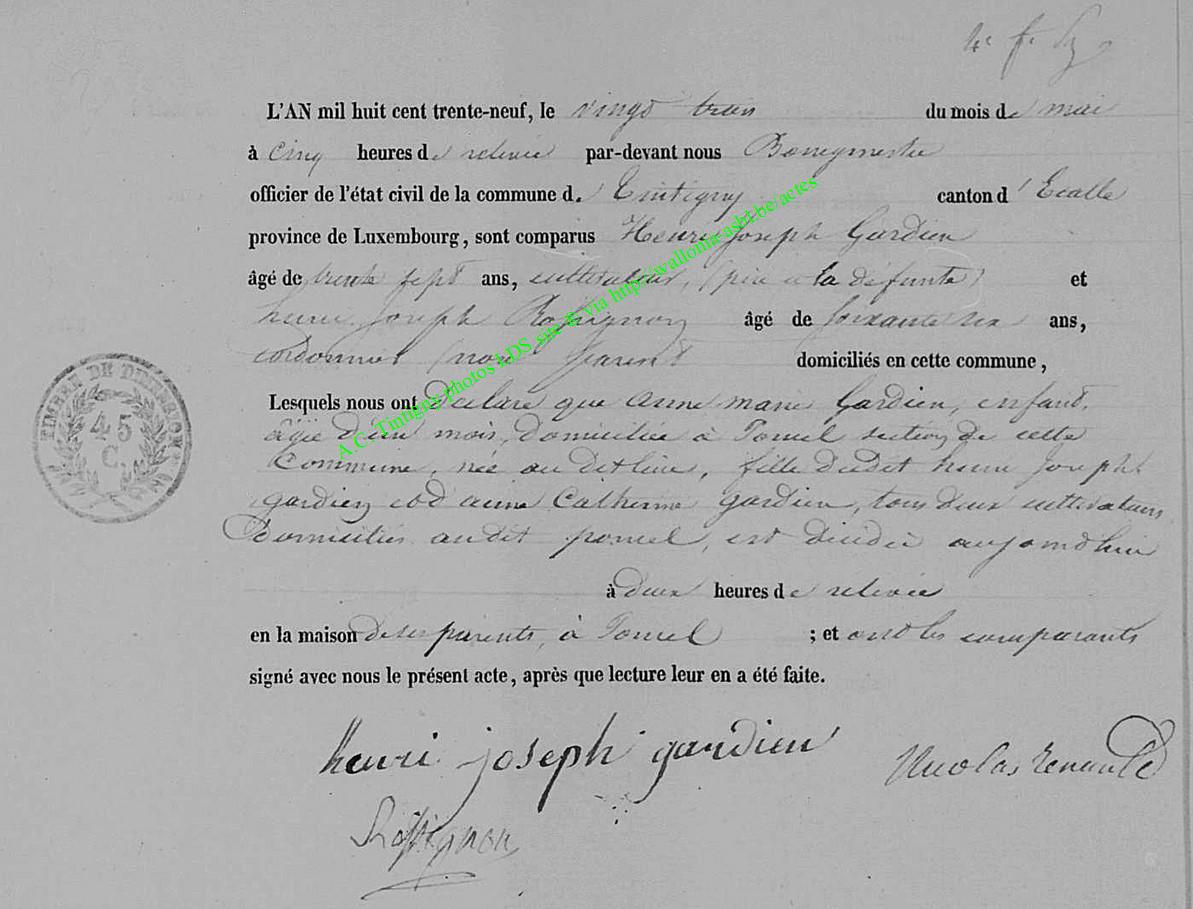 L'AN mil huit cent trente-neuf, le vingt trois du mois de mai
à cinq heures de relevée par-devant nous Bourgmestre
officier de l'état civil de la commune d. Tintigny canton d'Etalle
province de Luxembourg, sont comparus Henri Joseph Gardien
âgé de trente sept ans, cultivateur, (père à la défunte) et
henri Joseph Rossignon âgé de soixante six ans,
cordonnier (non parent domiciliés en cette commune,
Lesquels nous ont déclaré que anne marie Gardien, enfant,
âgée d'un mois, domiciliée à section de cette
Commune, née au dit lieu, fille dudit henri Joseph
gardien et d'anne Catherine gardien, tous deux cultivateurs
Domiciliés audit, est décédée aujourdhui
à deux heures de relevée
en la maison de ses parents, à ; et ont les comparants
signé avec nous le présent acte, après que lecture leur en a été faite.
henri joseph gardien
Nicolas renauld
Rossignon
TIMBRE DE DIMENSION
45
C.
A.C. Tintigny photos LDS site © via http://wallonia-asbl.be/actes